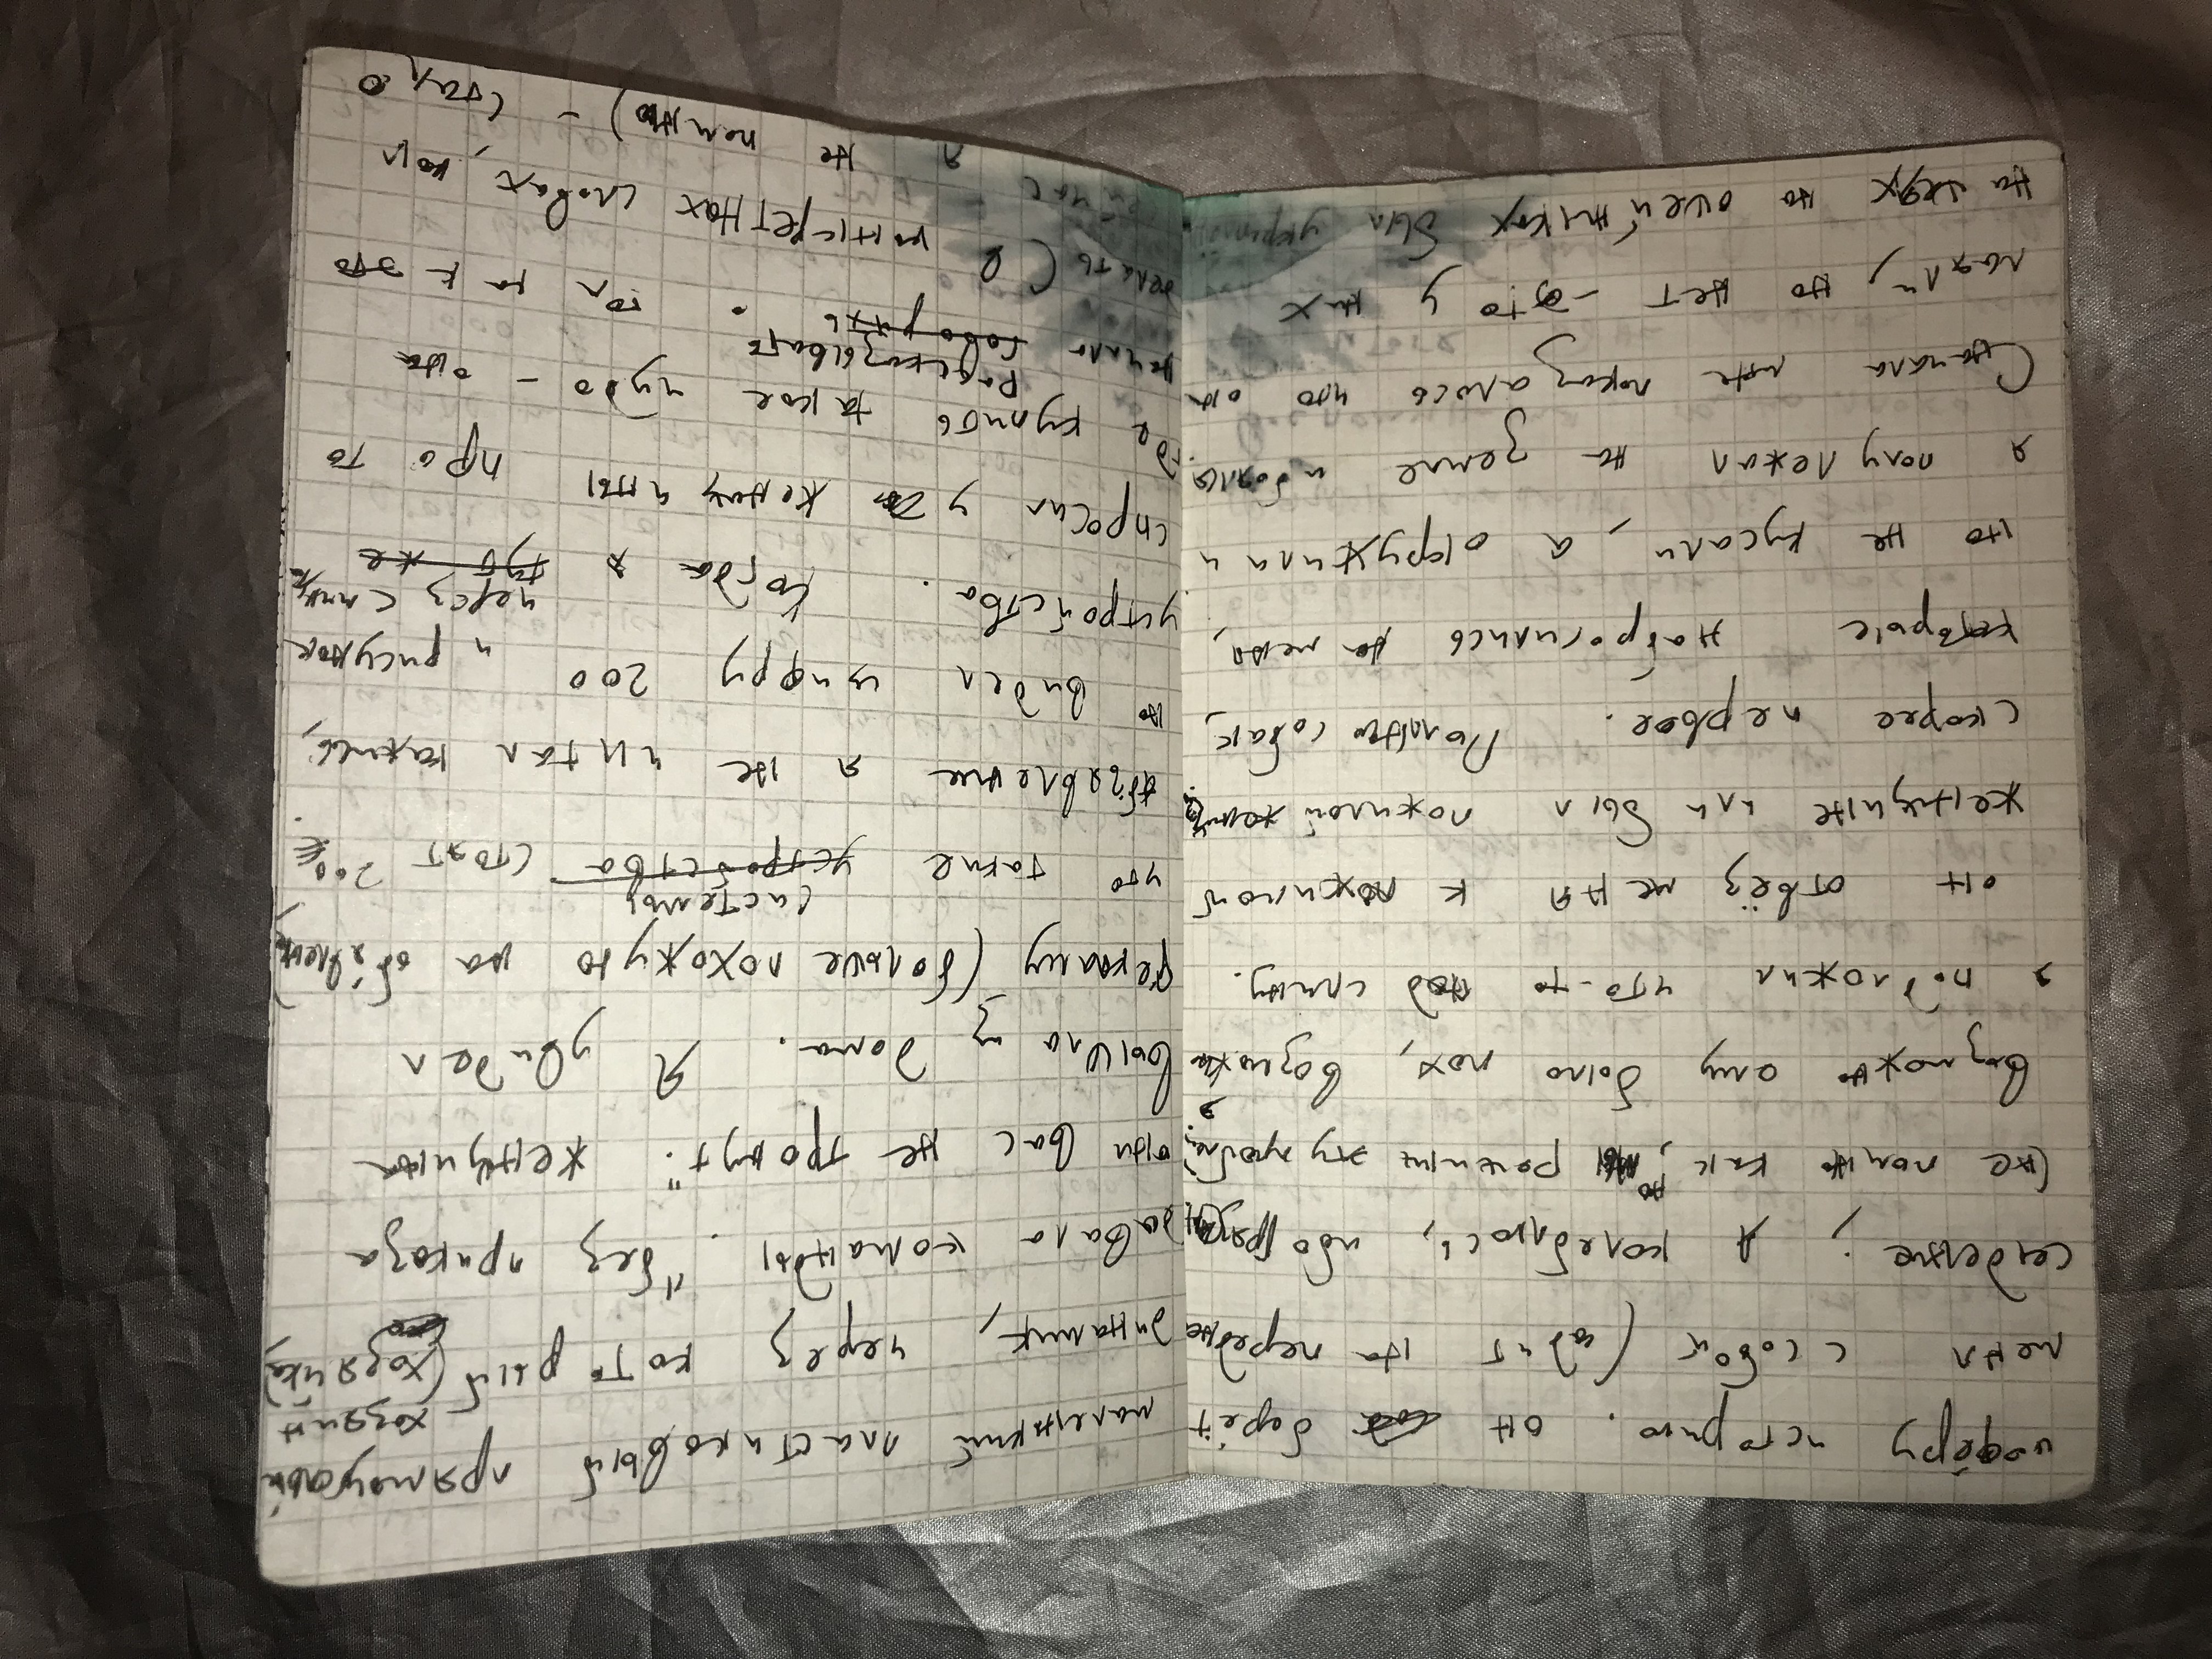 шофёру историю. он берёт
меня с собой (садит на передне
сиденье; я колеблюсь, ибо грязный
(не помню как, но мы решили эту проблему
возможно ему было пох, возможно
я подложил что-то под спину.
он отвёз меня к пожилой
женщине или был пожилой женщ
скорее первое. Помню собак,
которые набросились на меня,
но не кусали, а окружили и
я полулежал на земле и боялся.
Сначала мне показалось что они
лаяли, но нет - это у них
на шеях на ошейниках был укреплён
маленький пластиковый прямоугольный
хозяин
динамик, через который (хозяйка)
давала команды. "без приказа
они вас не тронут". женщина
вышла из дома. Я увидел
рекламу (больше похожую на объявление)
системы
что такие устройства стоят 200€.
объявление я не читал кажись,
но видел цифру 200 и рисунок
через с мину
устройства. Когда я тут же
спросил у женщины про то
где купить такое чудо - она
рассказывать
начала говорить. то как это
делать (в конкретных словах, кои
сейчас я не помню) - стало